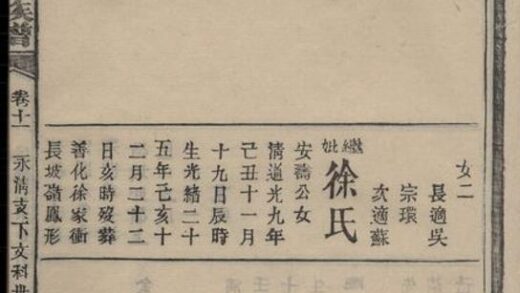 女二
長適吳
宗環
次適蘇
繼妣
徐氏
安濤公女
清道光九年
己丑十一月
十九日辰時
生光緒二十
五年己亥十
二月二十二
日亥時歿葬
善化徐家衝
長坡嶺鳳形
族譜
卷十一
永清支下文科